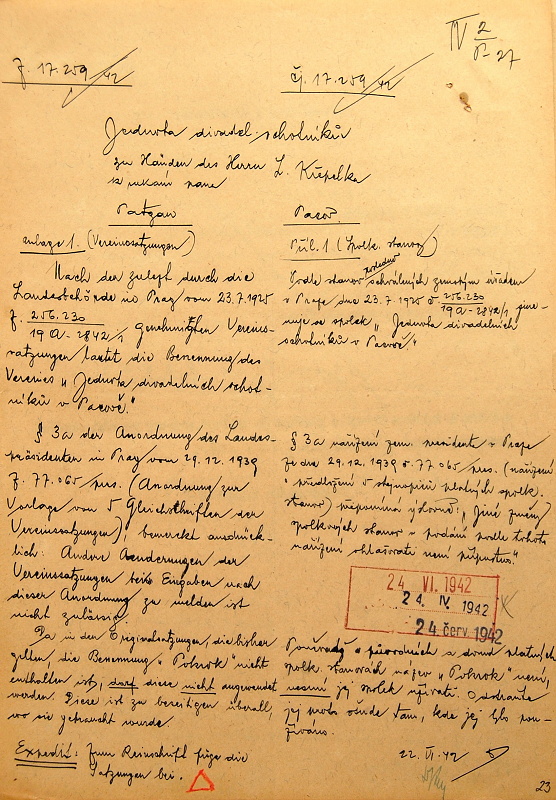 IV 2/P-27
Z. 17.259/42
Čj. 17.259/42
Jednota divadel. ochotníků
zu Händen des Herrn L. Křepelka
k rukám pana
Patzau
Anlage 1. (Vereinssatzungen)
Nach den zuletzt durch die
Landesbehörde in Prag vom 23.7.1925
Z. 256.230/19a-2842/1 genehmigten Vereins-
satzungen lautet die Benennung des
Vereines „Jednota divadelních ochot-
níků v Pacově."
§ 3a der Anordnung des Landes-
präsidenten in Prag vom 29.12.1939
Z. 77.065/pres. (Anordnung zur
Vorlage von 5 Gleichschriften der
Vereinssatzungen), bemerkt ausdrück-
lich: Andere Aenderungen der
Vereinssatzungen Eingaben nach
dieser Anordnung zu melden ist
nicht zulässig.
Da in den Originalsatzungen, die bisher
gelten, die Benennung „Pokrok" nicht
enthalten ist, darf diese nicht angewendet
werden. Diese ist zu beseitigen überall,
wo sie gebraucht wurde.
Expedit: Zum Reinschrift füge die
Satzungen bei.
Pacov
Příl. 1 (Spolk. stanov)
Podle stanov posledně schválených zemským úřadem
v Praze dne 23.7.1925 č. 256.230/19a-2842/1 jme-
nuje se spolek „Jednota divadelních
ochotníků v Pacově."
§ 3a nařízení zem. presidenta v Praze
ze dne 29.12.1939 č. 77.065/pres. (nařízení
o předložení 5 stejnopisů platných spolk.
stanov) připomíná výslovně: „Jiné změny
spolkových stanov v podání podle tohoto
nařízení ohlašovati není přípustno."
24. VI. 1942
24. IV. 1942
24. červ. 1942
Poněvadž v původních a dosud platných
spolk. stanovách název „Pokrok" není,
nesmí jej spolek užívati. Odstraňte
jej proto všude tam, kde jej bylo pou-
žíváno.
22. VI. 42
23